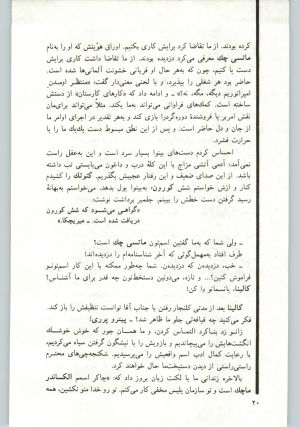 کرده بودند. از ما تقاضا کرد برایش کاری بکنیم. اوراق هویتش که او را به‌نام
ماتسی چك معرفی می‌کرد دزدیده بودند. از ما تقاضا داشت کاری برایش
دست پا کنیم، چون که به‌هر حال او قربانی خشونت آلمانی‌ها شده است.
حاضر بود هر شغلی را بپذیرد، و با لحنی معنی‌دار گفت: «منتظر اومدن
امپراتوریم دیگه، مگه، نه؟» و ادامه داد که «کارهای کارستان» از دستش
ساخته است. کمك‌های فراوانی می‌تواند به‌ما بکند. مثلا می‌تواند برای‌مان
نقش امربر یا فروشندهٔ دوره‌گردرا بازی کند و به‌هر تقدیر در اجرای اوامر ما
از جان و دل حاضر است. و پس از این نطق مبسوط دست یك‌یك ما را با
حرارت فشرد.
احساس کردم دست‌های بینوا بسیار سرد است و این به‌عقل راست
نمی‌آمد، آدمی آتشی مزاج با این کلهٔ درب و داغون می‌بایستی تب داشته
باشد. از این صدای ضعیف و این رفتار عجیبش یکه‌ریم. کتولك را کشیدم
کنار و ازش خواستم شش کورون، به‌بینوا پول بدهد. می‌خواستم به‌بهانهٔ
رسید گرفتن دست خطش را ببینم. جلمبر برداشت نوشت:
«گواهی می‌شود که شش کورون
دریافت شده است. ـ میریچکا.»
ـ ولی شما که به‌ما گفتین اسم‌تون ماتسی چك است؟
طرف افتاد به‌مهمل‌گوئی که آخر شناسنامه‌ام را دزدیده‌اند!
ـ خب، دزدیدن که دزدیدن. شما چه‌طور ممکنه با این کار اسم‌تونو
فراموش کنین؟... و تازه، می‌دونین دستخط‌تون چه قدر برای ما آشناس؟
کالینا، پانسمانو وا کن!
کالینا بعد از مدتی کلنجار رفتن با جناب آقا توانست تنظیفش را باز کند.
فکر می‌کنید چه قیافه‌ئی جلو ما ظاهر شد؟ ـ پیترو پرری!
زانو زد بنا‌کرد التماس کردن، و ما همان جور که خوش خوشك
انگشت‌هایش را می‌پیچاندیم و بازویش را با نیشگون گرفتن سیاه می‌کردیم،
با رعایت کمال ادب اسم واقعیش را می‌پرسیدیم. شکنجه‌چی‌های محترم
راستی‌راستی از دیدن دستپخت‌ما حال خواهند کرد.
بالاخره زندانی ما با لکنت زبان بروز داد که: «چاکر اسمم الکساندر
ماچك است و تو سازمان پلیس مخفی کار می‌کنم. تو رو خدا منو نکشین، همه
۲۰